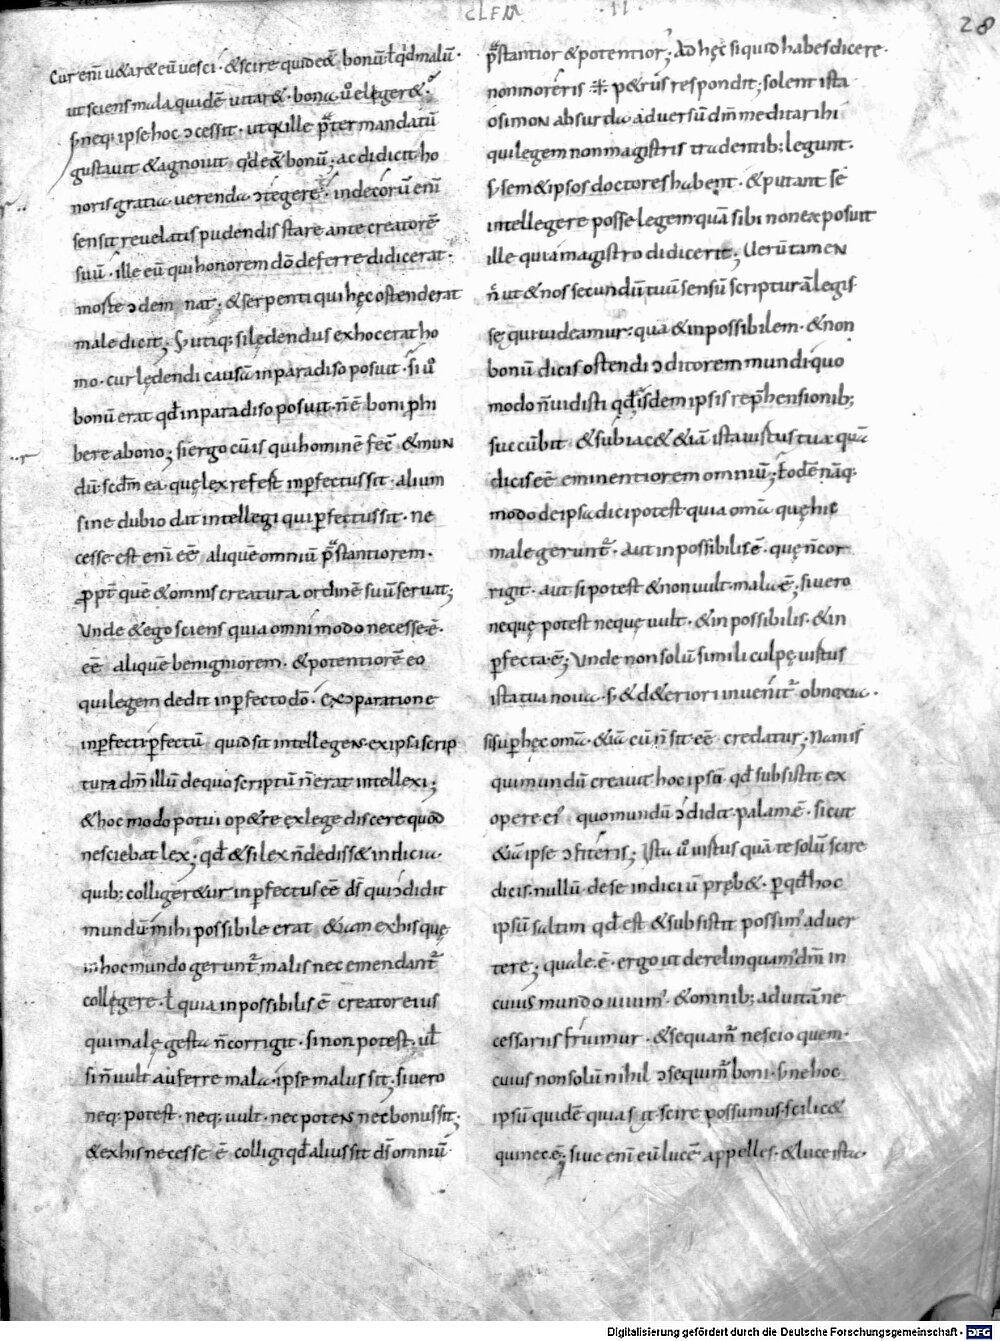 CLEM · II
28
Cur enī u&ar& eū uesci · & scire quid e&̄ bonū ł qd malū ·
ut sciens mala quidē uitar& · bona u͛o elẹger& ·
s; neq; ipse hoc ɔcessit · ut & ille p̄ter mandatū
gustauit & agnouit qd e&̄ bonū; ac didicit ho
noris gratia uerenda ɔtegere · indecorū enī
sensit reuelatis pudendis stare ante creatorē
suū · ille eū qui honorem dō deferre didicerat ·
morte ɔdemnat · & serpenti qui hęc ostenderat
male dicit; S; utiq; si lędendus ex hoc erat ho
mo · cur lędendi causā in paradiso posuit · si u͛o
bonū erat qd in paradiso posuit · n̄ ē boni phi
bere a bono; si ergo cū is qui hominē fec̄ & mun
dū · scdm ea quę lex refert inp̄fectus sit · alium
sine dubio dat intellegi qui p̄fectus sit · ne
cesse est enī eē aliquē omniū p̄stantiorem ·
ppt̄ quē & omnis creatura ordinē suū seruat;
Vnde & ego sciens quia omni modo necesse ē ·
eē aliquē benigniorem · & potentiorē eo
qui legem dedit inp̄fecto dō · ex ɔparatione
inp̄fecti p̄fectū quid sit intellegens · ex ipsa scrip
tura dm̄ illū de quo scriptū n̄ erat intellexi;
& hoc modo potui op&re ex lege discere quod
nesciebat lex; qd & si lex n̄ dediss& indicia
quib; colliger&ur inp̄fectus eē ds̄ qui ɔdidit
mundū · mihi possibile erat &iam ex his quę
in hoc mundo gerunt̄ malis nec emendant̄
collegere · ł quia inpossibilis ē creator eius
qui male gesta n̄ corrigit · si non potest · ul̄
si n̄ uult auferre mala · ipse malus sit; si uero
neq; potest · neq; uult · nec potens nec bonus sit;
& ex his necesse ē colligi qd alius sit ds̄ omniū
p̄stantior & potentior; Ad hęc si quid habes dicere ·
non moreris ※ p&rus respondit; solent ista
o simon absurda aduersū dm̄ meditari hi
qui legem non magistris tradentib; legunt ·
s; sem& ipsos doctores habent · & putant se
intellegere posse legem quā sibi non exposuit
ille qui a magistro didicerit; Verū tamen
n̄c ut & nos secundū tuū sensū scripturā legis
se qui uideamur: quā & inpossibilem · & non
bonū dicis ostendi ɔditorem mundi quo
modo n̄ uidisti qd isdem ipsis rep̄hensionib;
succūbit & subiac& &iā ista uirtus tua quā
dicis eē eminentiorem omniū; eodē nāq;
modo de ipsa dici potest quia omā quę hic
male gerunt̄ · aut inpossibilis ē · quę n̄ cor
rigit · aut si potest & non uult · mala ē; si uero
neque potest neque uult · & inpossibilis · & in
p̄fecta ē; Vnde non solū simili culpę uirtus
ista tua noua · s; & d&eriori inuenit̄ obnoxia ·
si sup̄ hęc omā &iā cū n̄ sit eē credatur; Nam is
qui mundū creauit hoc ipsū qd subsistit ex
opere ei' quo mundū ɔdidit palam ē · sicut
&iā ipse ɔfiteris; Ista u͛o uirtus quā te solū scire
dicis · nullū de se indiciū pręb& · p qd hoc
ipsū saltim qd est & subsistit possim' aduer
tere; quale ē · ergo ut derelinquam' dm̄ in
cuius mundo uiuim' · & omnib; ad uitā ne
cessariis fruimur · & sequam̄ nescio quem ·
cuius non solū nihil ɔsequim̄ boni · s; ne hoc
ipsū quidē quia sit scire possumus · scilic&
qui nec ē; siue enī eū lucē appelles · & luce ista
Digitalisierung gefördert durch die Deutsche Forschungsgemeinschaft - DFG